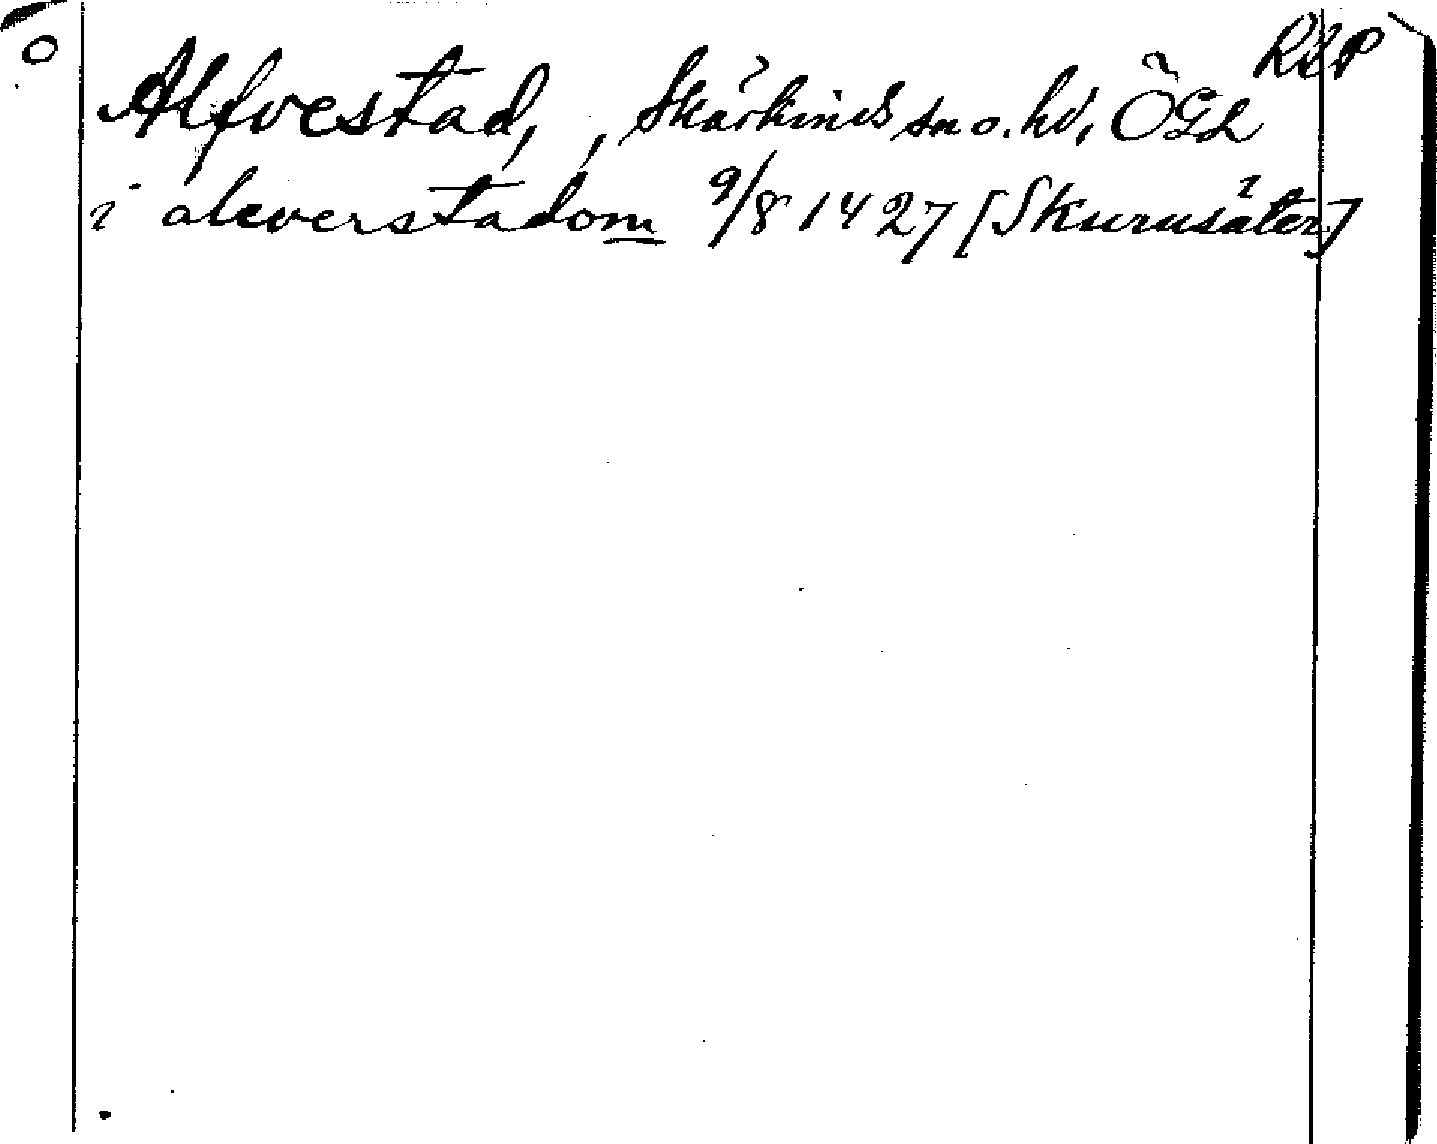 RAP
Alfvestad, , Skärkinds sn o. hd, ÖGL
i aleverstadom 9/8 1427 [Skurusäter]